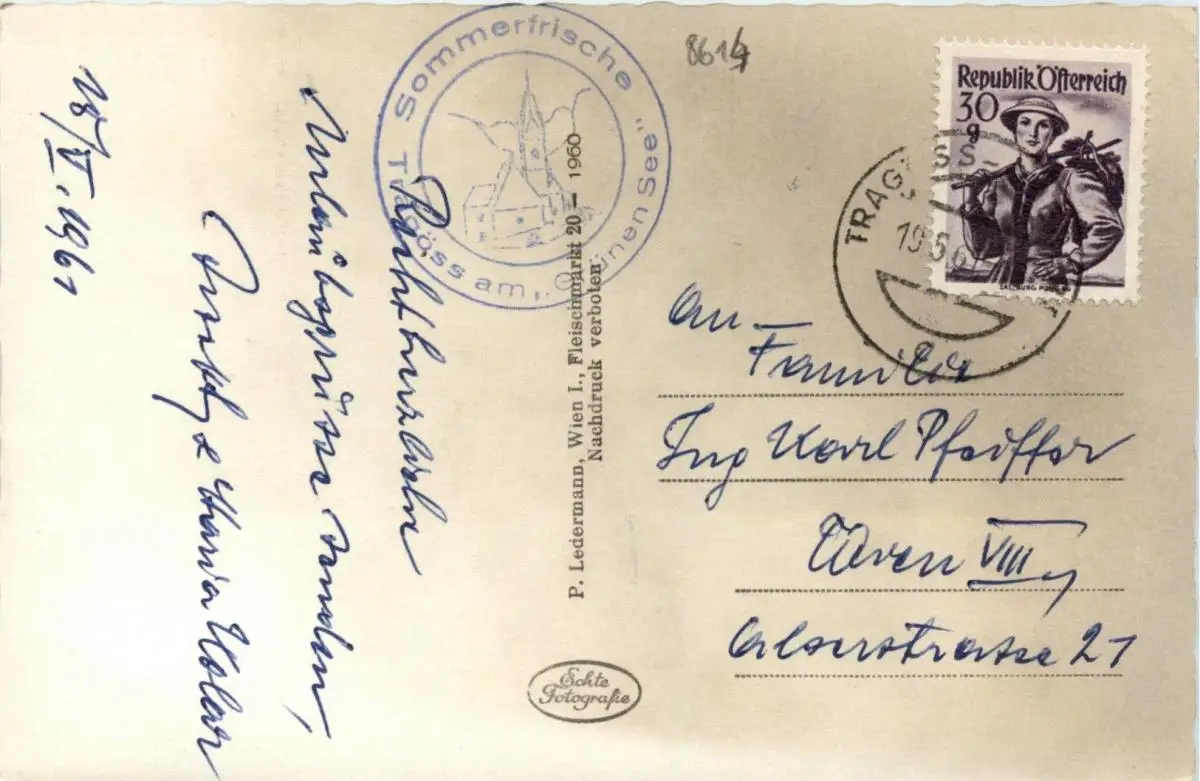 Sommerfrische
Tragöss am „Grünen See“
8614
Republik Österreich
30
g
TRAGÖSS-
19.5.6
Recht herzliche
Urlaubsgrüsse senden,
& Maria
18/V. 1961
P. Ledermann, Wien I., Fleischmarkt 20 — 1960
Nachdruck verboten
An
Familie
Ing Karl Pfeiffer
Wien VIII
Alserstrasse 21
Echte
Fotografie